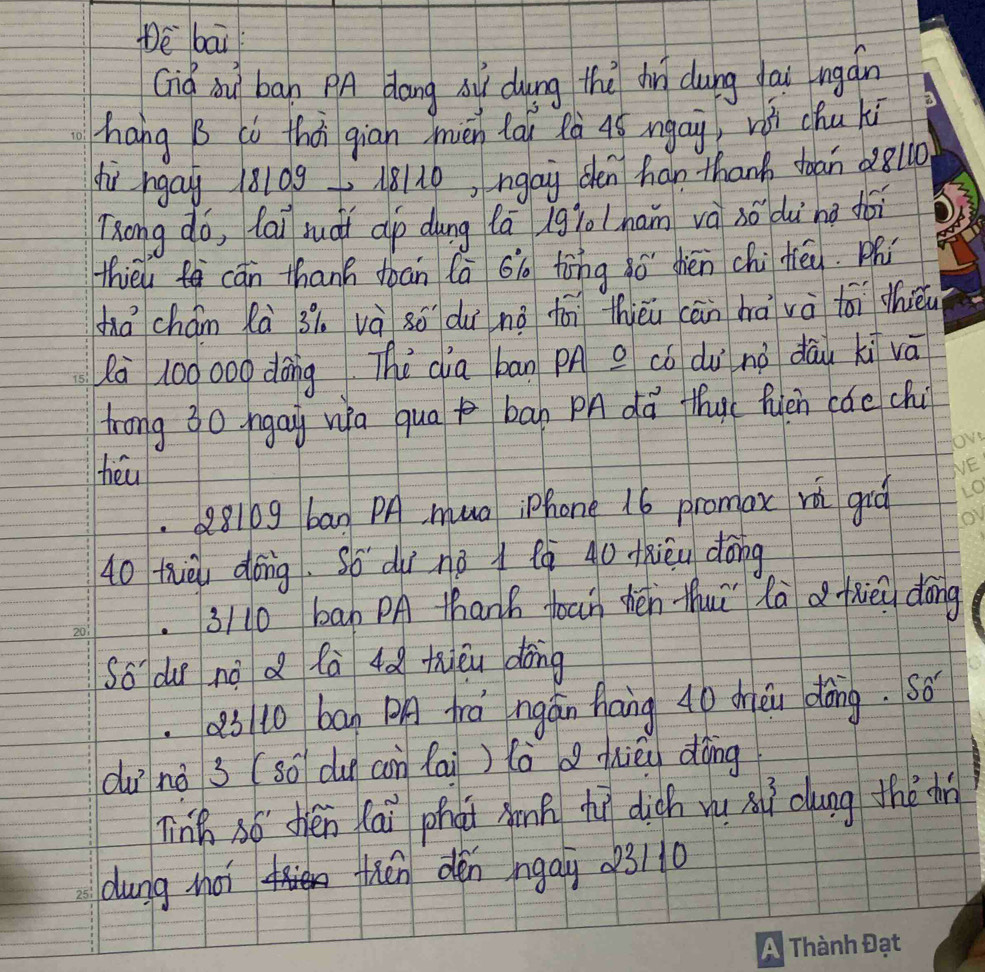 Đề bài:
Giả sử bạn PA đang sử dụng thẻ tín dụng tại ngân
hàng B có thời gian miễn lãi là 45 ngày, với chu kì
từ ngày 18/09 → 18/10, ngày đến hạn thanh toán 28/10
Trong đó, lãi suất áp dụng là 19%/năm và số dư nợ tối
thiểu cần thanh toán là 6% tổng số tiền chi tiêu. Phí
trả chậm là 3% và số dư nợ tối thiểu cần trả và tối thiểu
là 100 000 đồng. Thẻ của bạn PA 0 có dư nợ đầu kì và
trong 30 ngày vừa qua bạn PA đã thực hiện các chi
tiêu
. 28/09 bạn PA mua iPhone 16 promax với giá
40 triệu đồng. Số dư nợ 1 là 40 triệu đồng
. 3/10 bạn PA thanh toán tiền thuế là 2 triệu đồng
Số dư nợ 2 là 42 triệu đồng
. 23/10 bạn PA trả ngân hàng 40 triệu đồng. Số
dư nợ 3 (số dư còn lại) là 2 triệu đồng.
Tính số tiền lãi phát sinh từ dịch vụ sử dụng thẻ tín
dụng nói trên đến ngày 23/10
10
15
20
25
A Thành Đạt